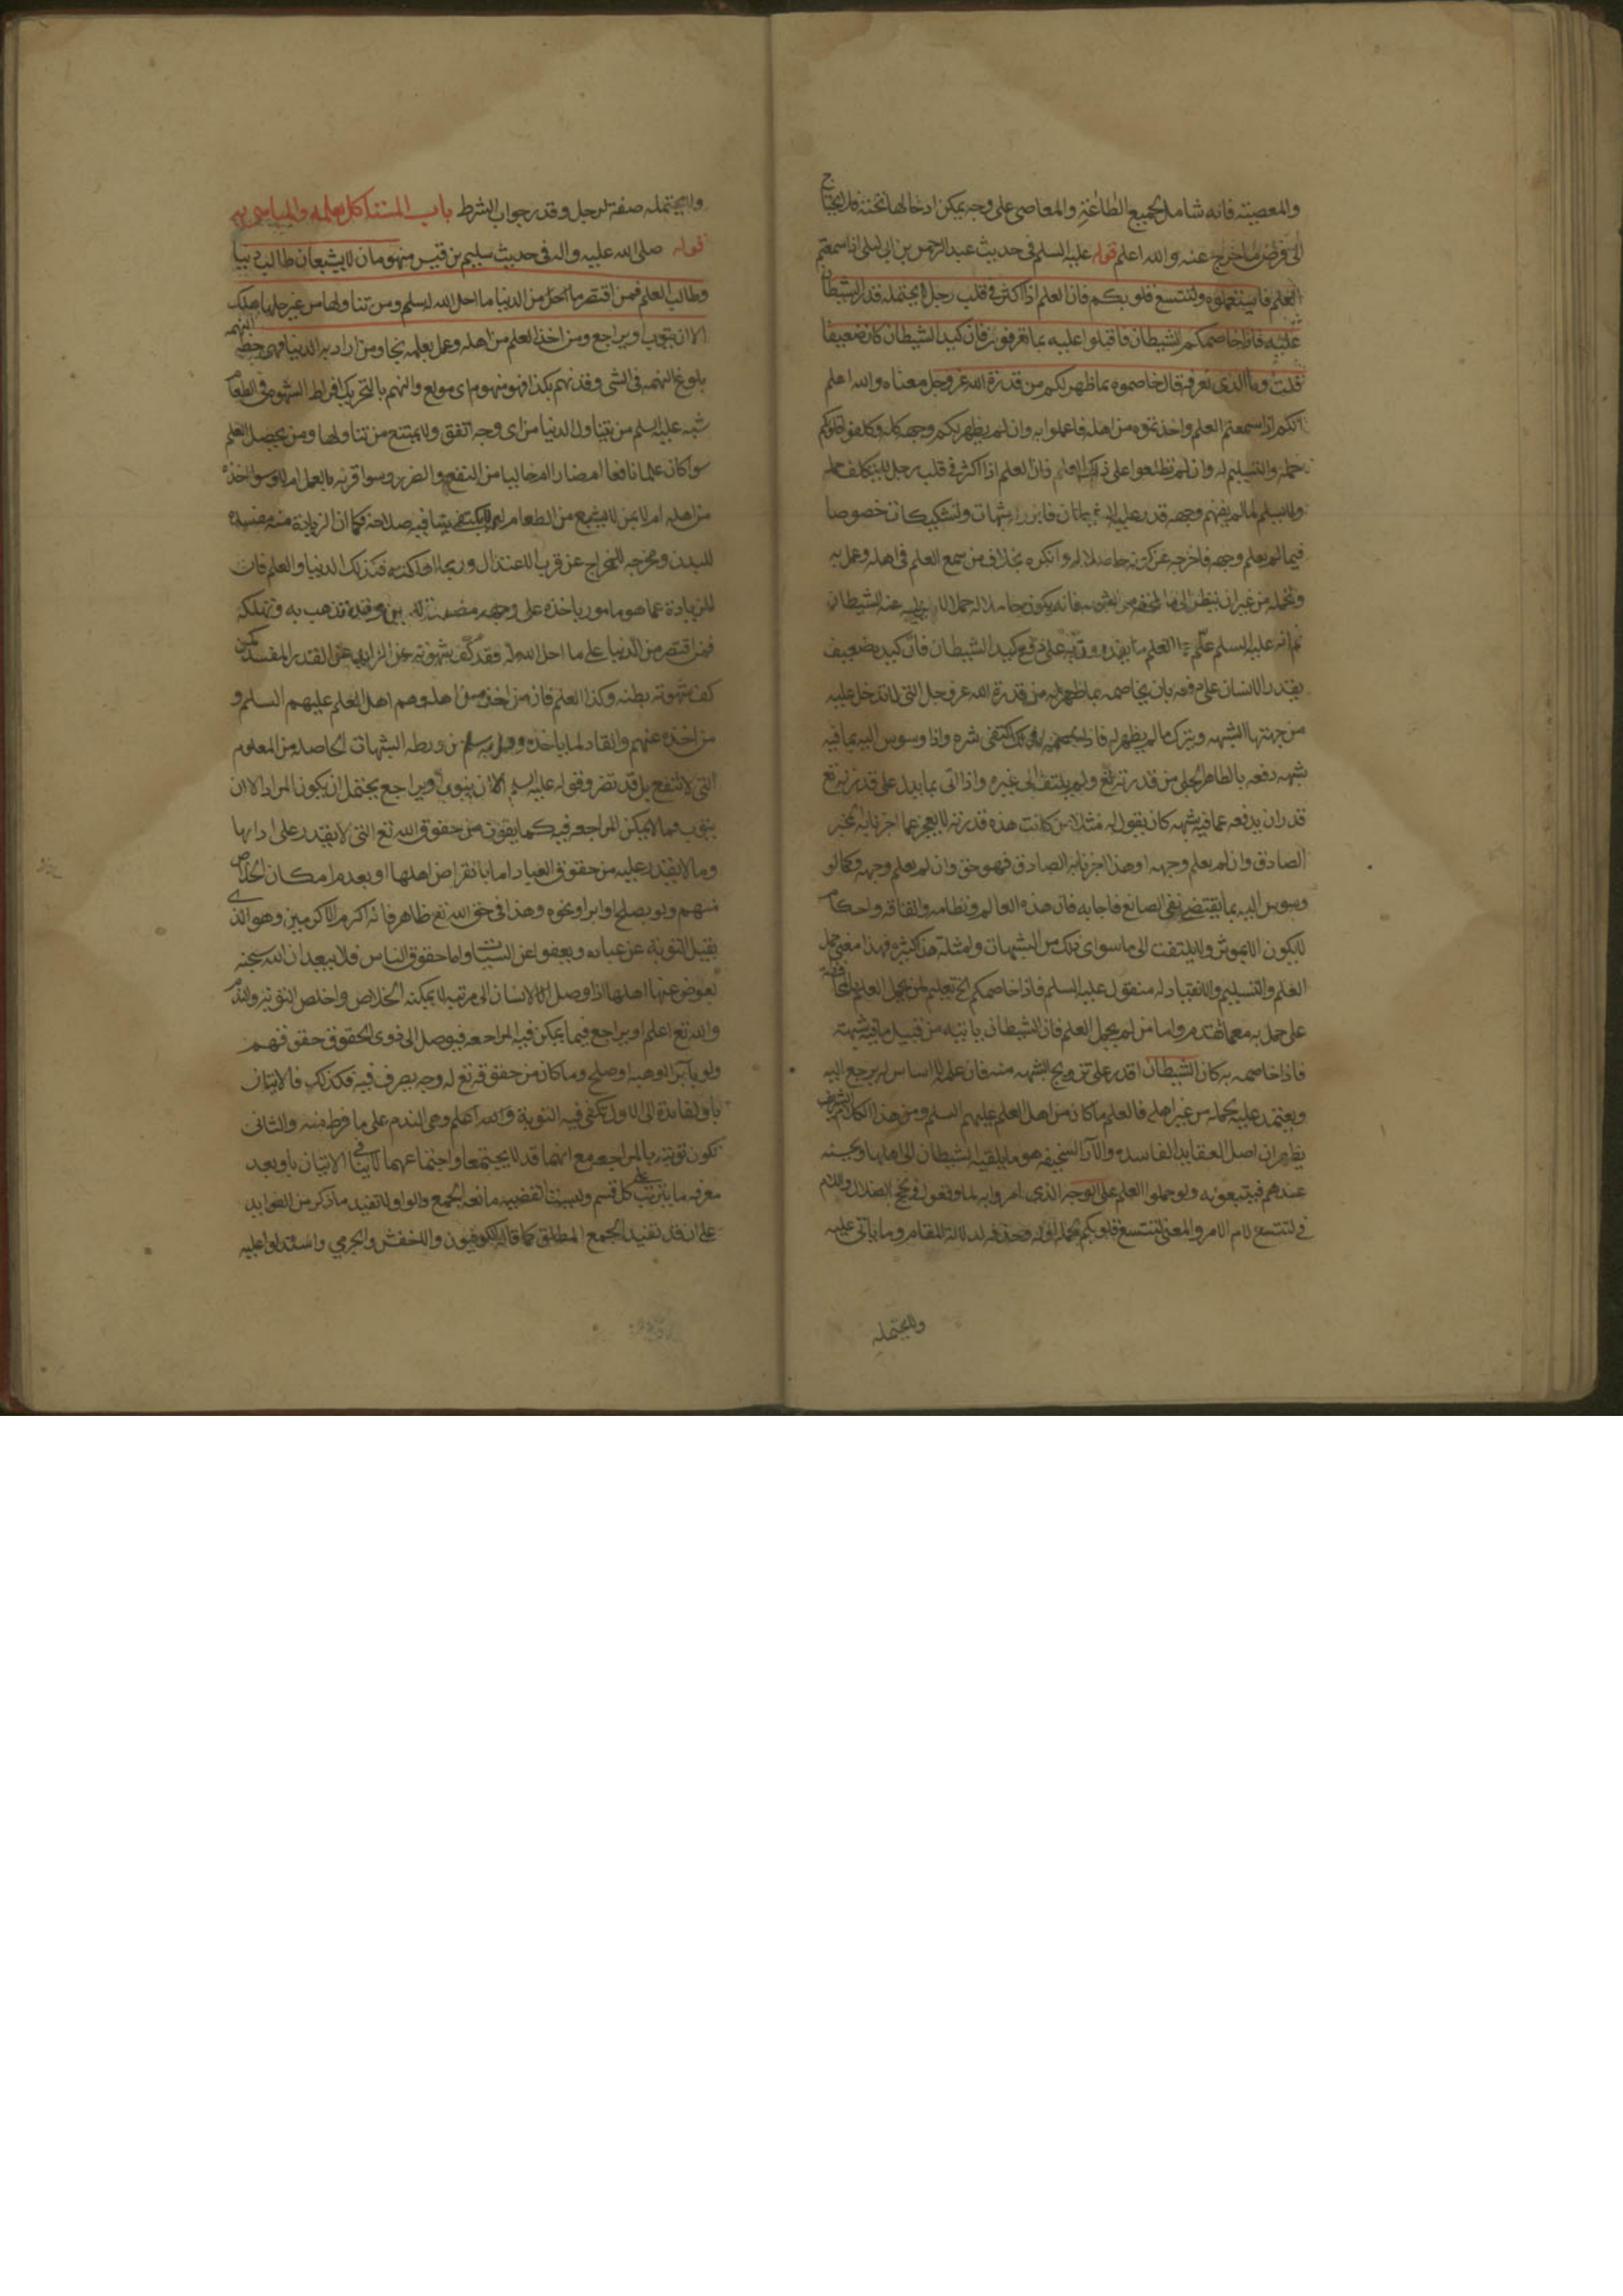 والمعصيته فانه شامل لجميع الطاعة والمعاصي على وجه يمكن ادخالها تحته فلا يحتاج
الى فرض ما خرج عنه والله اعلم قوله عليه السلم في حديث عبد الرحمن بن ابي ليلى اذا سمعتم
العلم فاستعملوه ولتتسع قلوبكم فان العلم اذا كثر في قلب رجل لا يحتمله قدر الشيطان
عليه فاذا خاصمكم الشيطان فاقبلوا عليه بما تعرفون فان كيد الشيطان كان ضعيفا
فقلت وما الذي نعرفه قال خاصموه بما ظهر لكم من قدرة الله عز وجل معناه والله اعلم
انكم اذا سمعتم العلم واخذتموه من اهله فاعملوا به وان لم يظهر لكم وجهه كله وكلفوا قلوبكم
حمله والتسليم له وان لم تطلعوا على ذلك فان العلم اذا كثر في قلب رجل لا يتكلف حمله
ولا يسلم لما لم يفهم وجهه قدر عليه الشيطان شبهات وتشكيكات خصوصا
فيما لم يعلم وجهه فاخرجه عن كونه حاصلا له وانكره بخلاف من سمع العلم من اهله وعمل به
وتحمله من غير ان ينظر الى فانه يكون حاملا له حملا عنه الشيطان
ثم انه عليه السلم علم العلم ما يقدر به على دفع كيد الشيطان فان كيده ضعيف
يقتدر الانسان على دفعه بان يخاصمه بما ظهر له من قدرة الله عز وجل التي لا تدخل عليه
من جهتها الشبهه ويترك ما لم يظهر له فاذا خاصمه بذلك اكتفى شره واذا وسوس اليه بما فيه
شبهه دفعه بالظاهر الجلي من قدرته تع ولم يلتفت الى غيره واذا اتى بما يدل على قدرته تع
قدر ان يدفعه عما فيه شبهه كان يقول له مثلا من كانت هذه قدرته لا يعجز عما اخبرنا به المخبر
الصادق وان لم يعلم وجهه او هذا اخبرنا به الصادق فهو حق وان لم يعلم وجهه وكما لو
وسوس اليه بما يقتضي نفي الصانع فاجابه فان هذه العالم ونظامه واتقانه واحكامه
لا يكون الا بموثر ولا يلتفت الى ما سوى ذلك من الشبهات وامثلة هذا كثيره فهذا معنى حمل
العلم والتسليم والانقياد له منقول عليه السلم فاذا خاصمكم الخ تعليم لمن يحمل العلم
على حمله معما تقدم واما من لم يحمل العلم فان الشيطان ياتيه من قبيل ما فيه شبهته
فاذا خاصمه به كان الشيطان اقدر على ترويج الشبهه منه فان علمه لا اساس له يرجع اليه
ويعتمد عليه بحمله من غير اهله فالعلم ما كان من اهل العلم عليهم السلم ومن هذا الكلام الشريف
يظهر ان اصل العقايد الفاسده والآرا السخيفه هو ما يلقيه الشيطان الى اهلها ويحسنه
عندهم فيتبعونه ولو حملوا العلم على الوجه الذي امروا به لما وقعوا في لجج الضلال واللام
في لتتسع لام الامر والمعنى لتتسع قلوبكم وحذفه لدلالة المقام وما ياتي عليه
ولا يحتمله
ولا يحتمله صفة لرجل وقدر جواب الشرط باب المستاكل بعلمه والمباهي به
قوله صلى الله عليه واله في حديث سليم بن قيس منهومان لا يشبعان طالب دنيا
وطالب العلم فمن اقتصر من الدنيا ما احل الله له سلم ومن تناولها من غير حلها هلك
الا ان يتوب او يراجع ومن اخذ العلم من اهله وعمل بعلمه نجا ومن اراد به الدنيا فهي حظه النهمه
بلوغ النهمه في الشي وقد نهم بكذا فهو منهوم اي مولع والنهم بالتحريك افراط الشهوه في الطعام
شبه عليه السلم من يتناول الدنيا من اي وجه اتفق ولا يمتنع من تناولها ومن يحصل العلم
سوا كان علما نافعا ام ضارا ام خاليا من النفع والضرر وسوا قرنه بالعمل ام لا وسوا اخذه
من اهله ام لا بمن لا يشبع من الطعام بما فيه صلاحه فكما ان الزيادة منه مفسده
للبدن ومخرجه للمزاج عن قرب الاعتدال وربما اهلكته فكذلك الدنيا والعلم فان
للزيادة عما هو مامور ياخذه على وجهه تذهب به وتهلكه
فمن اقتصر من الدنيا على ما احل الله له فقد كف شهوته عن الزايد عن القدر المفسد كمن
كف شهوته بطنه وكذا العلم فان من اخذه من اهله وهم اهل العلم عليهم السلم و
من اخذه عنهم وانقاد لما ياخذه سلم من ورطه الشبهات الحاصله من العلوم
التي لا تنفع بل قد تضر وقوله عليه السلم الا ان يتوب او يراجع يحتمل ان يكون المراد الا ان
يتوب فيما لا يمكن المراجعه فيه كما يفوت من حقوق الله تع التي لا يقدر على ادائها
وما لا يقدر عليه من حقوق العباد اما بانقراض اهلها او بعدم امكان الخلاص
منهم ولو بصلح او ابرا ونحوه وهذا في حق الله تع ظاهر فانه اكرم الاكرمين وهو الذي
يقبل التوبة عن عباده ويعفوا عن السيئات واما حقوق الناس فلا يبعد ان الله سبحنه
يعوض عنها اهلها اذا وصل الانسان الى مرتبه لا يمكنه الخلاص واخلص التوبه والندم
والله تع اعلم او يراجع فيما يمكن فيه المراجعه فيوصل الى ذوي الحقوق حقوقهم
ولو بابرا او هبه او صلح وما كان من حقوقه تع له وجه يصرف فيه فكذلك فالاتيان
باو لفايدة ان الاول تكفي فيه التوبة والله اعلم وهي الندم على ما فرط منه والثاني
تكون توبته بالمراجعه مع انهما قد لا يجتمعا واجتماعهما لا ينافي الاتيان باو بعد
معرفه ما يترتب على كل قسم وليست القضيه مانعه الجمع والواو لا تفيد ما ذكر من الفوايد
على ان قد تفيد الجمع المطلق كما قاله الكوفيون والاخفش والجرمي واستدلوا عليه